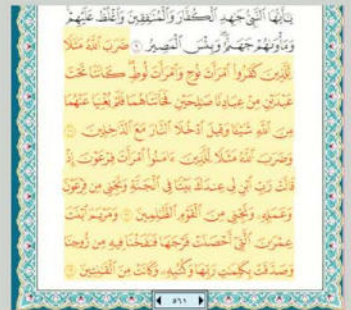 يَٰٓأَيُّهَا ٱلنَّبِيُّ جَٰهِدِ ٱلْكُفَّارَ وَٱلْمُنَٰفِقِينَ وَٱغْلُظْ عَلَيْهِمْ
وَمَأْوَىٰهُمْ جَهَنَّمُ وَبِئْسَ ٱلْمَصِيرُ ٩ ضَرَبَ ٱللَّهُ مَثَلًا
لِّلَّذِينَ كَفَرُوا۟ ٱمْرَأَتَ نُوحٍ وَٱمْرَأَتَ لُوطٍ كَانَتَا تَحْتَ
عَبْدَيْنِ مِنْ عِبَادِنَا صَٰلِحَيْنِ فَخَانَتَاهُمَا فَلَمْ يُغْنِيَا عَنْهُمَا
مِنَ ٱللَّهِ شَيْـًٔا وَقِيلَ ٱدْخُلَا ٱلنَّارَ مَعَ ٱلدَّٰخِلِينَ ١٠
وَضَرَبَ ٱللَّهُ مَثَلًا لِّلَّذِينَ ءَامَنُوا۟ ٱمْرَأَتَ فِرْعَوْنَ إِذْ
قَالَتْ رَبِّ ٱبْنِ لِى عِندَكَ بَيْتًا فِى ٱلْجَنَّةِ وَنَجِّنِى مِن فِرْعَوْنَ
وَعَمَلِهِۦ وَنَجِّنِى مِنَ ٱلْقَوْمِ ٱلظَّٰلِمِينَ ١١ وَمَرْيَمَ ٱبْنَتَ
عِمْرَٰنَ ٱلَّتِىٓ أَحْصَنَتْ فَرْجَهَا فَنَفَخْنَا فِيهِ مِن رُّوحِنَا
وَصَدَّقَتْ بِكَلِمَٰتِ رَبِّهَا وَكُتُبِهِۦ وَكَانَتْ مِنَ ٱلْقَٰنِتِينَ ١٢
٥٦١